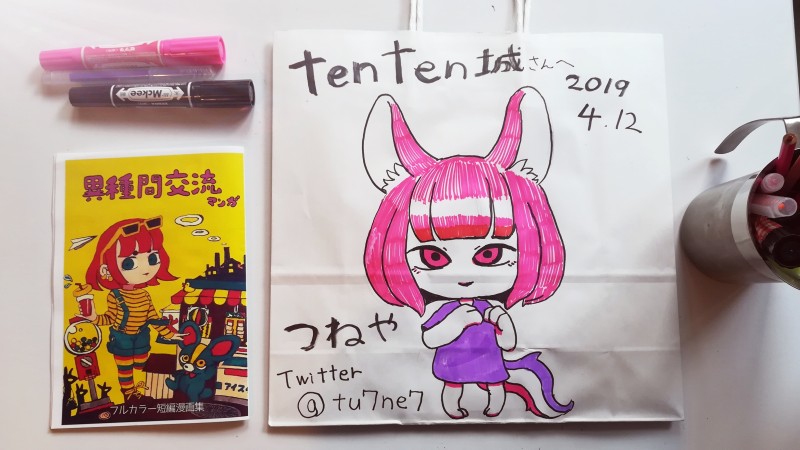 Mckee
異種間交流
マンガ
アイス
フルカラー短編漫画集
tenten城さんへ
2019
4.12
つねや
Twitter
@tu7ne7